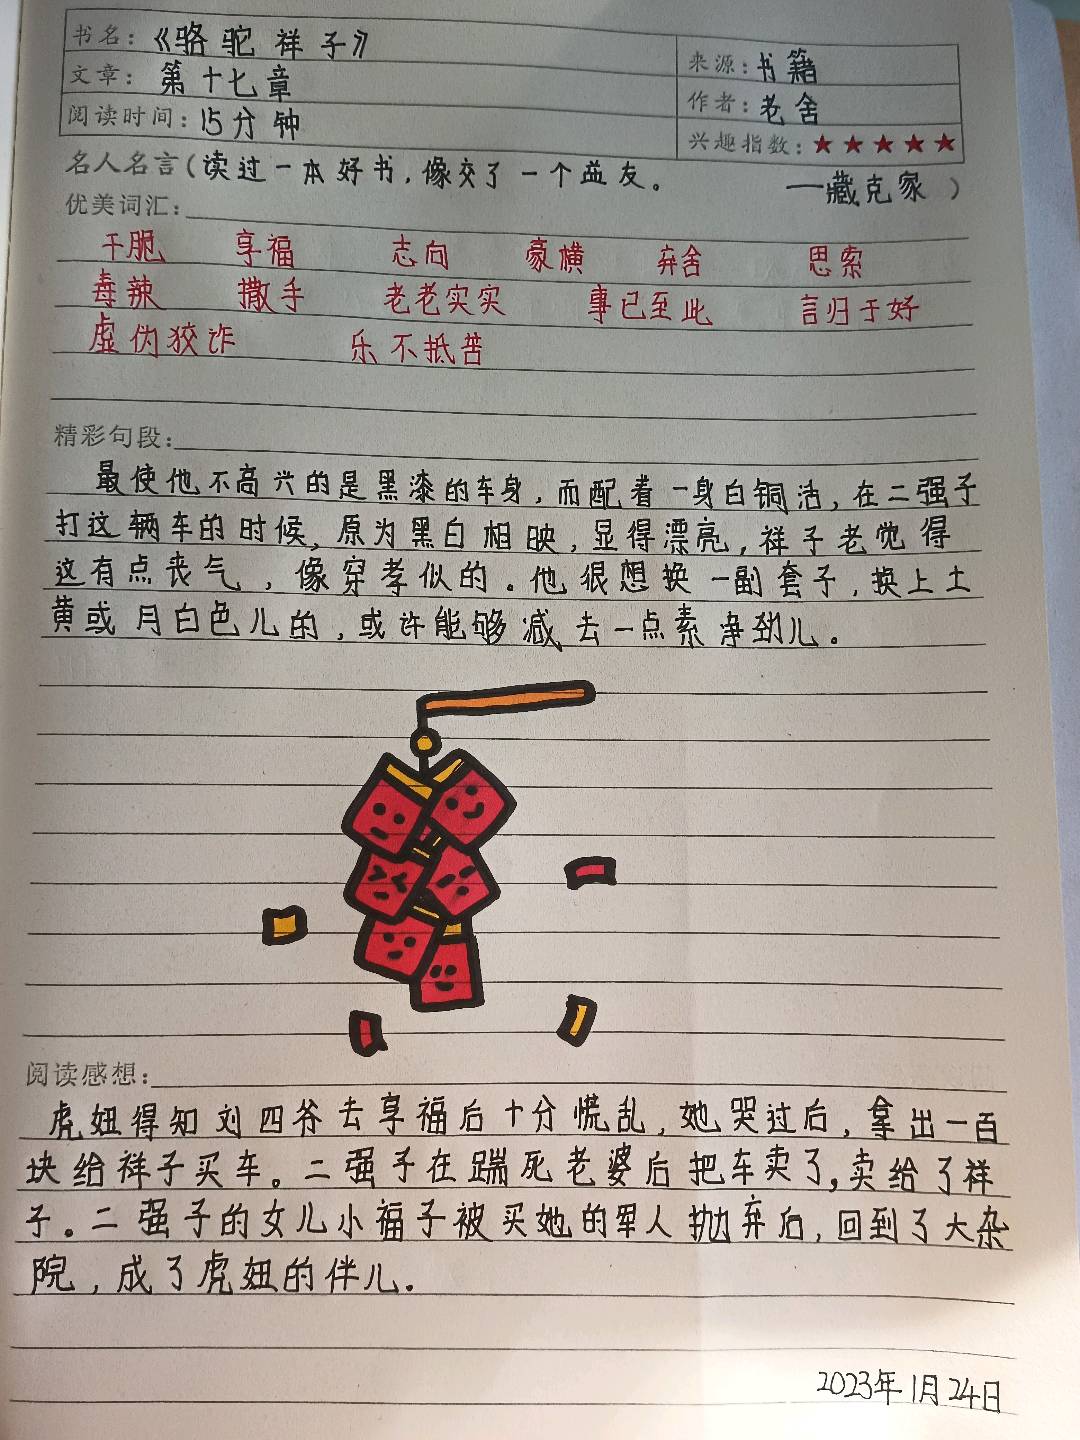 书名：《骆驼祥子》
来源：书籍
文章：第十七章
作者：老舍
阅读时间：15分钟
兴趣指数：★★★★★
名人名言（读过一本好书，像交了一个益友。 ——臧克家）
优美词汇：
干脆 享福 志向 豪横 弃舍 思索
毒辣 撒手 老老实实 事已至此 言归于好
虚伪狡诈 乐不抵苦
精彩句段：
最使他不高兴的是黑漆的车身，而配着一身白铜活，在二强子
打这辆车的时候，原为黑白相映，显得漂亮，祥子老觉得
这有点丧气，像穿孝似的。他很想换一副套子，换上土
黄或月白色儿的，或许能够减去一点素净劲儿。
阅读感想：
虎妞得知刘四爷去享福后十分慌乱，她哭过后，拿出一百
块给祥子买车。二强子在踹死老婆后把车卖了，卖给了祥
子。二强子的女儿小福子被买她的军人抛弃后，回到了大杂
院，成了虎妞的伴儿。
2023年1月24日